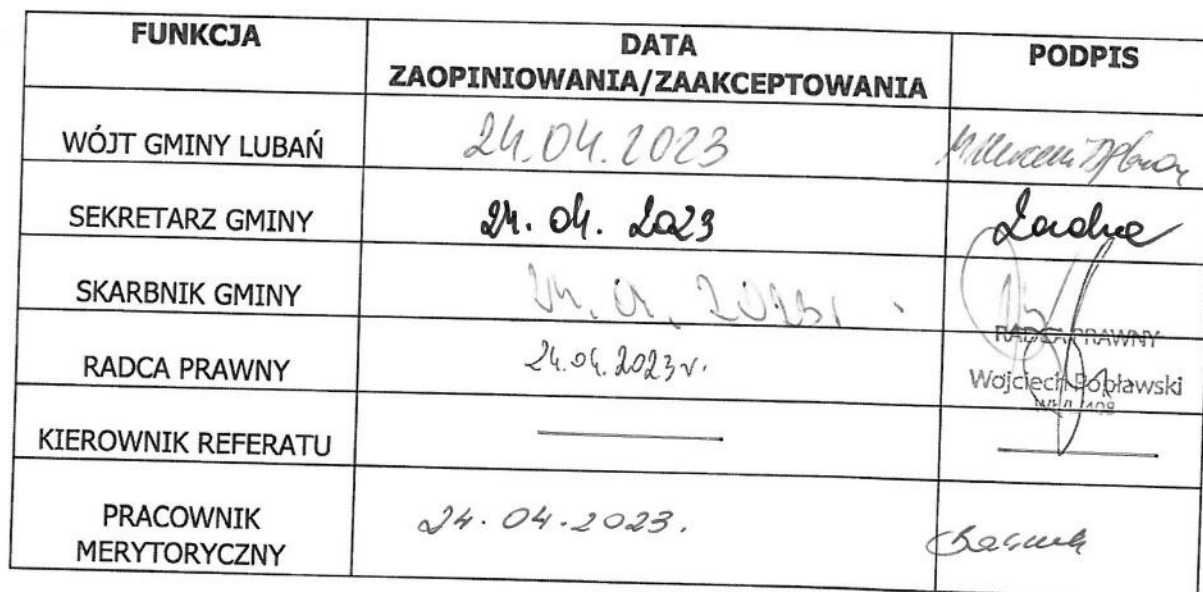 FUNKCJA
DATA
ZAOPINIOWANIA/ZAAKCEPTOWANIA
PODPIS
WÓJT GMINY LUBAŃ
24.04.2023
SEKRETARZ GMINY
24. 04. 2023
SKARBNIK GMINY
RADCA PRAWNY
24.04.2023 r.
RADCA PRAWNY
Wojciech Popławski
KIEROWNIK REFERATU
PRACOWNIK
MERYTORYCZNY
24.04.2023.